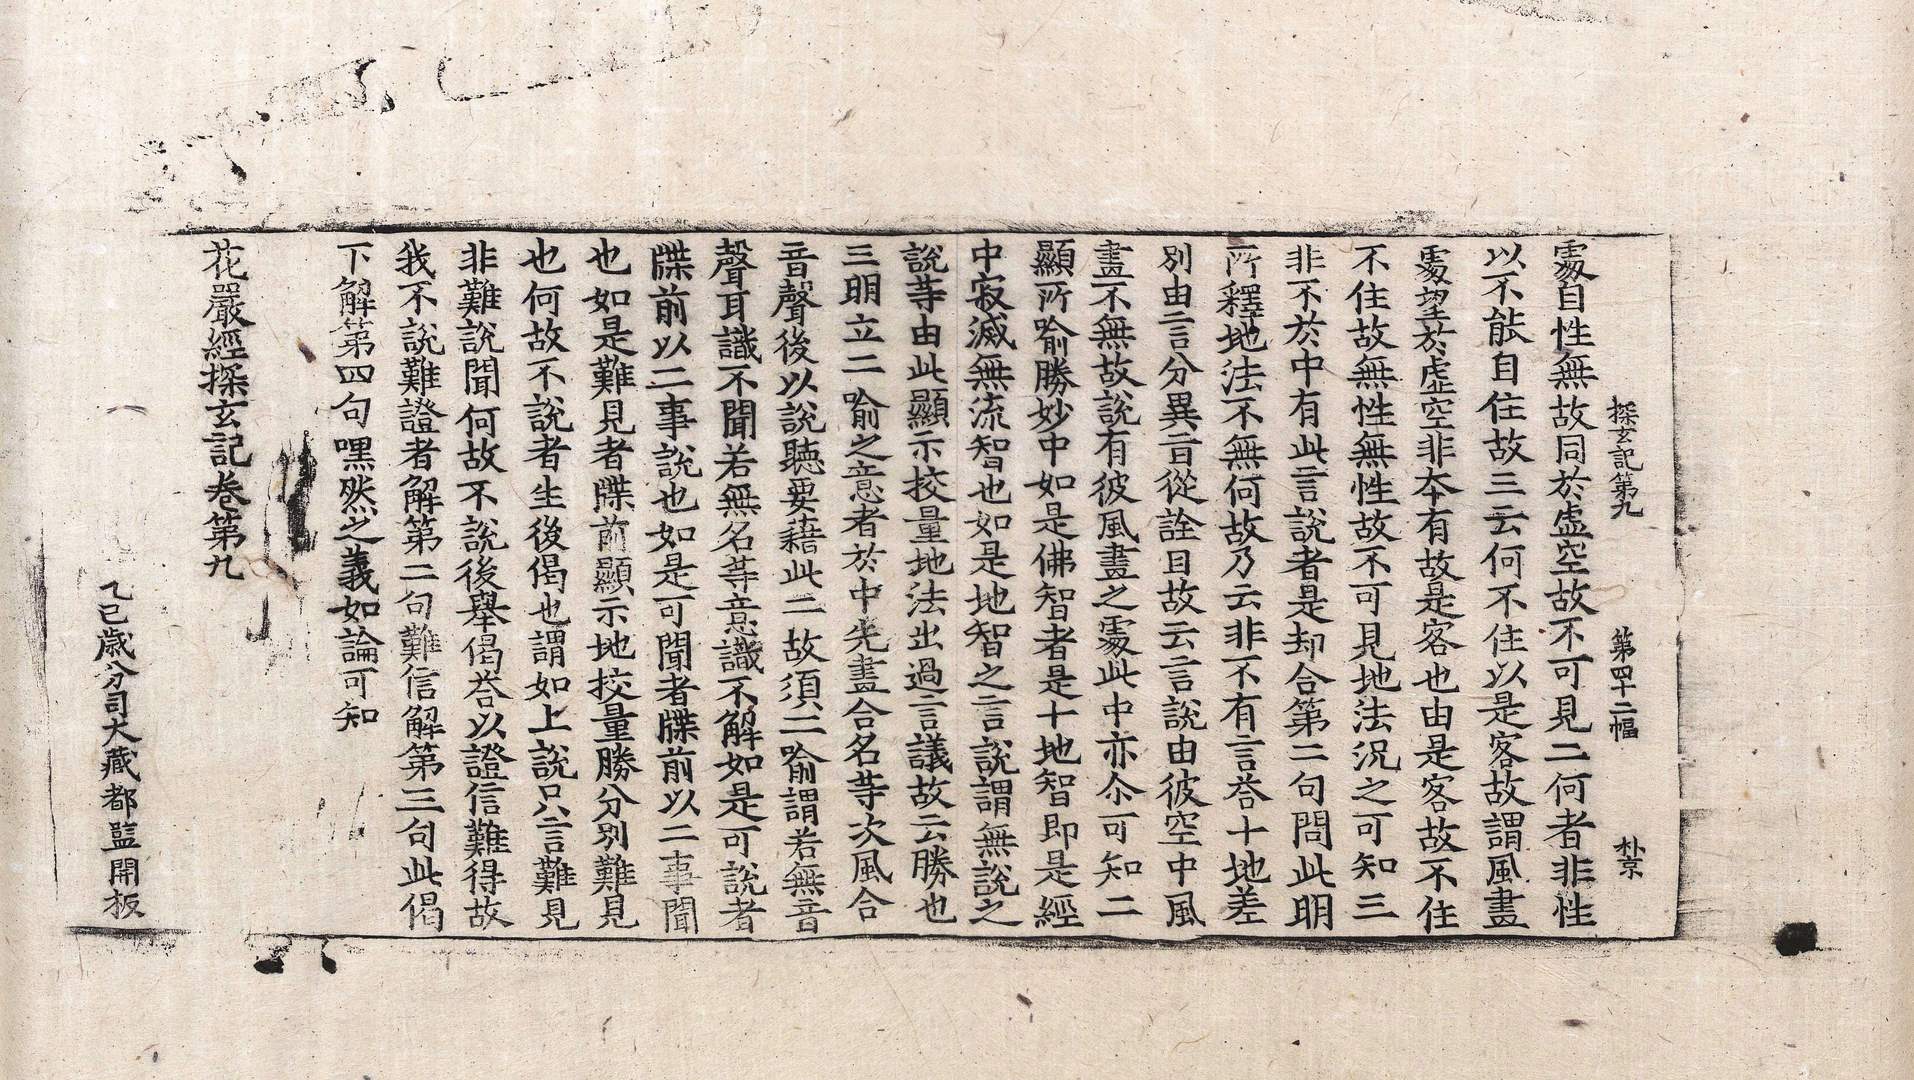 探玄記第九 第四十二幅 朴京
處自性無故同於虛空故不可見二何者非性
以不能自住故三云何不住以是客故謂風畫
處望於虛空非本有故是客也由是客故不住
不住故無性無性故不可見地法況之可知三
非不於中有此言說者是却合第二句問此明
所釋地法不無何故乃云非不有言荅十地差
別由言分異言從詮目故云言說由彼空中風
畫不無故說有彼風畫之處此中亦尒可知二
顯所喻勝妙中如是佛智者是十地智即是經
中寂滅無流智也如是地智之言說謂無說之
說等由此顯示挍量地法出過言議故云勝也
三明立二喻之意者於中先畫合名等次風合
音聲後以說聽要藉此二故須二喻謂若無音
聲耳識不聞若無名等意識不解如是可說者
牒前以二事說也如是可聞者牒前以二事聞
也如是難見者牒前顯示地挍量勝分別難見
也何故不說者生後偈也謂如上說只言難見
非難說聞何故不說後舉偈荅以證信難得故
我不說難證者解第二句難信解第三句此偈
下解第四句嘿然之義如論可知
花嚴經探玄記卷第九
乙巳歲分司大藏都監開板